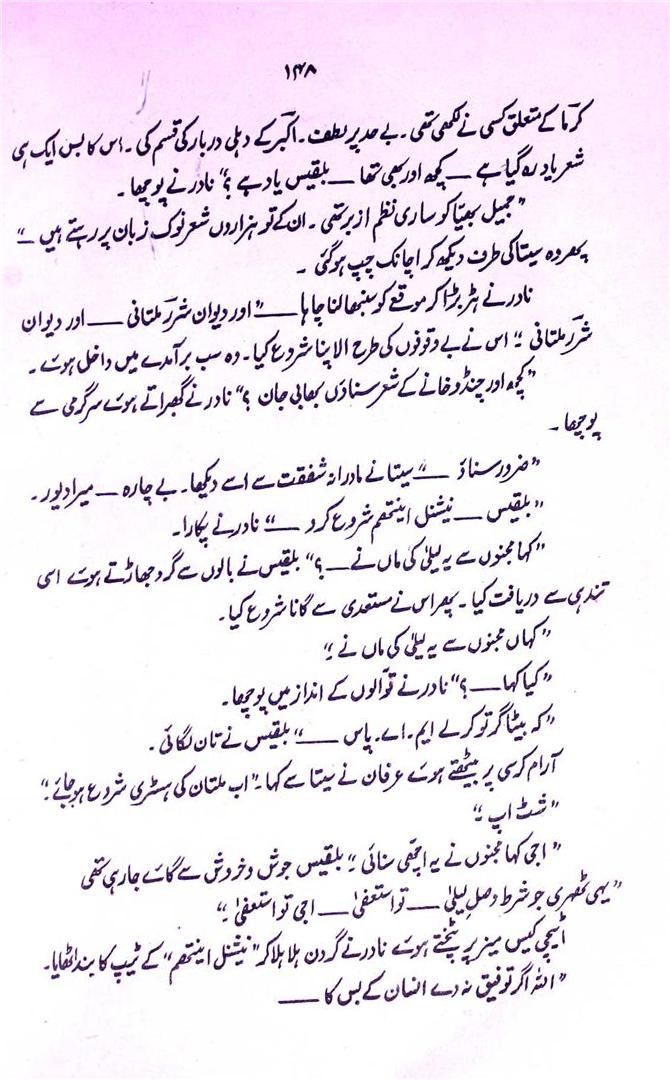 ۱۴۸
کرما کے متعلق کسی نے لکھی تھی۔ بے حد پر لطف۔ اکبر کے دہلی دربار کی قسم کی۔ اس کا بس ایک ہی
شعر یاد رہ گیا ہے — کچھ اور بھی تھا — بلقیس یاد ہے ؟" نادر نے پوچھا۔
"جمیل بھیّا کو ساری نظم ازبر تھی۔ ان کے تو ہزاروں شعر نوک زبان پر رہتے ہیں —"
پھر وہ سیتا کی طرف دیکھ کر اچانک چپ ہو گئی۔
نادر نے ہڑبڑا کر موقعے کو سنبھالنا چاہا —" اور دیوان شررؔ ملتانی — اور دیوان
شررؔ ملتانی۔" اس نے بے وقوفوں کی طرح الاپنا شروع کیا۔ وہ سب برآمدے میں داخل ہوئے۔
"کچھ اور چنڈو خانے کے شعر سناؤں بھابی جان ؟" نادر نے گھبراتے ہوئے سرگرمی سے
پوچھا۔
"ضرور سناؤ —" سیتا نے مادرانہ شفقت سے اسے دیکھا۔ بے چارہ — میرا دیور۔
"بلقیس — نیشنل اینتھم شروع کرو —" نادر نے پکارا۔
"کہا مجنوں سے یہ لیلیٰ کی ماں نے — ؟" بلقیس نے بالوں سے گرد جھاڑتے ہوئے اسی
تندہی سے دریافت کیا۔ پھر اس نے مستعدی سے گانا شروع کیا۔
"کہاں مجنوں سے یہ لیلیٰ کی ماں نے۔"
"کیا کہا — ؟" نادر نے قوّالوں کے انداز میں پوچھا۔
"کہ بیٹا گر تو کرلے ایم۔ اے۔ پاس —" بلقیس نے تان لگائی۔
آرام کرسی پر بیٹھتے ہوئے عرفان نے سیتا سے کہا۔ "اب ملتان کی ہسٹری شروع ہو جائے۔"
"شٹ اپ۔"
"اجی کہا مجنوں نے یہ اچھّی سنائی۔" بلقیس جوش و خروش سے گائے جا رہی تھی
"یہی ٹھہری جو شرط وصلِ لیلیٰ — تو استعفیٰ — اجی تو استعفیٰ۔"
اٹیچی کیس میز پر پٹختے ہوئے نادر نے گردن ہلا ہلا کر "نیشنل اینتھم" کے ٹیپ کا بند اٹھایا۔
"اللہ اگر توفیق نہ دے انسان کے بس کا —